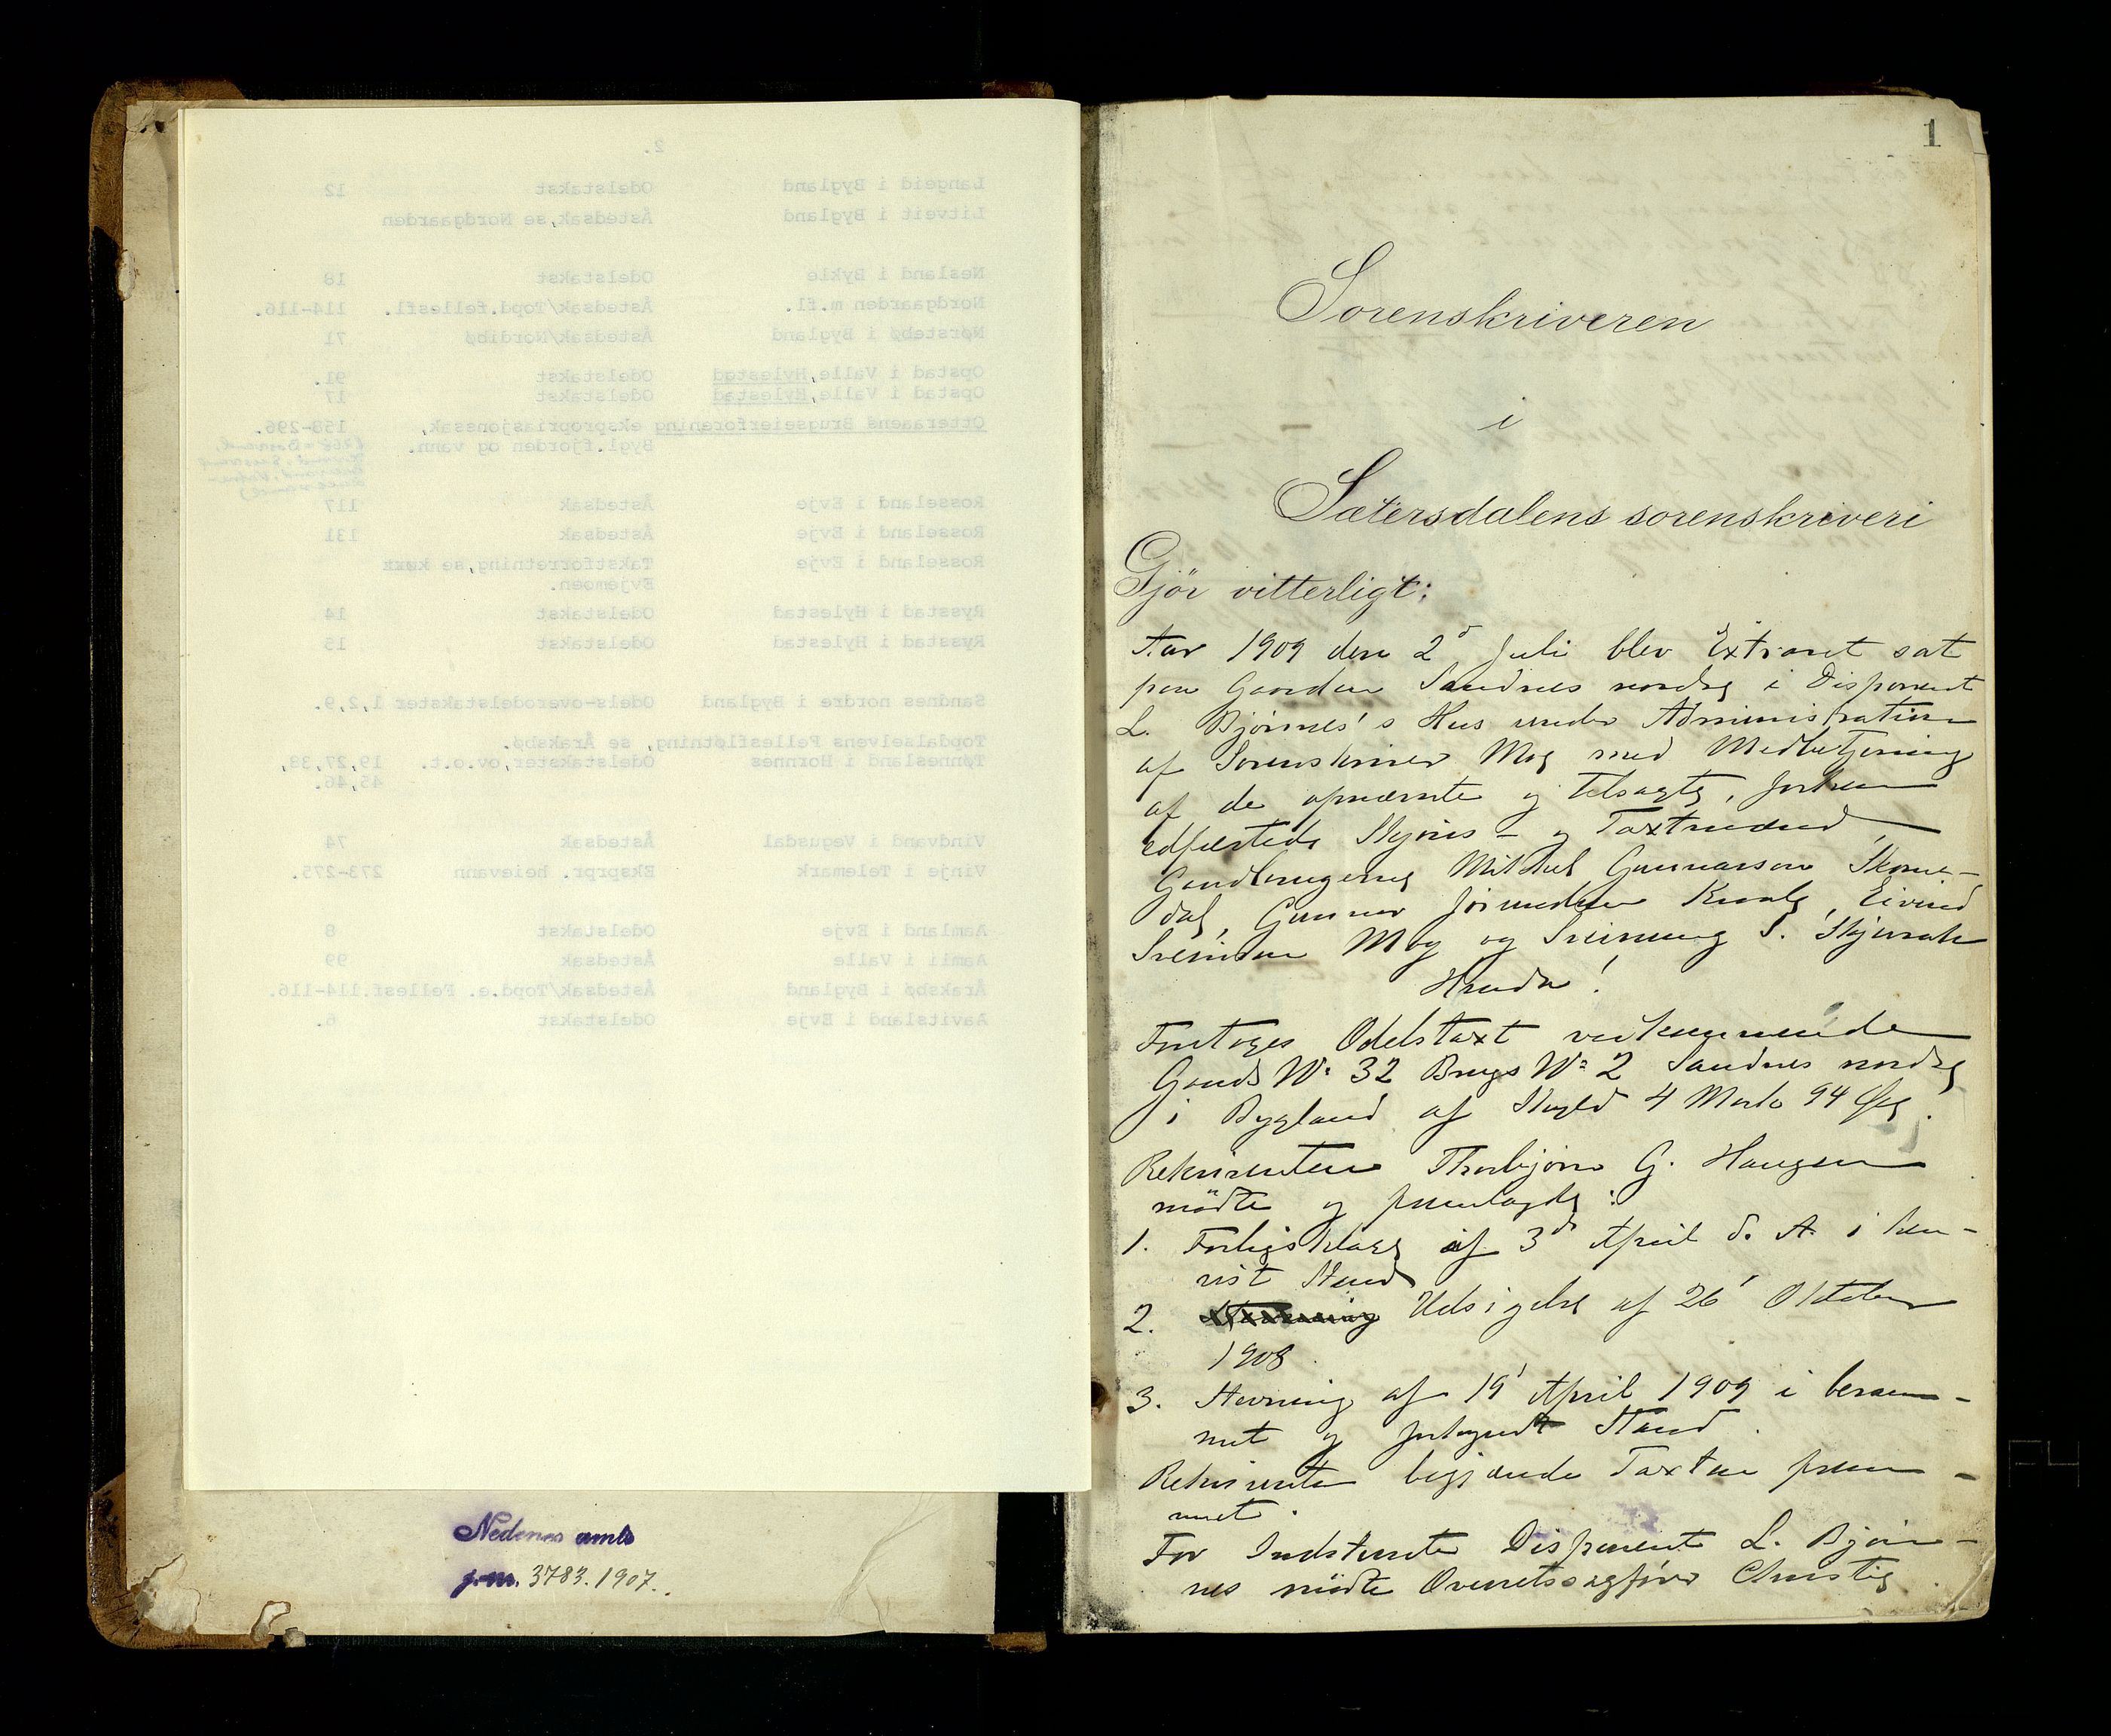 2.
Langeid i Bygland Odelstakst 12
Litveit i Bygland Åstedsak, se Nordgaarden
Nesland i Bykle Odelstakst 18
Nordgaarden m.fl. Åstedsak/Topd.fellesfl. 114-116.
Nørstebø i Bygland Åstedsak/Nordibø 71
Opstad i Valle, Hylestad Odelstakst 91.
Opstad i Valle, Hylestad Odelstakst 17
Otteraaens Brugseierforening ekspropriasjonssak, 158-296.
Bygl.fjorden og vann.
Rosseland i Evje Åstedsak 117
Rosseland i Evje Åstedsak 131
Rosseland i Evje Takstforretning, se
Evjemoen.
Rysstad i Hylestad Odelstakst 14
Rysstad i Hylestad Odelstakst 15
Sandnes nordre i Bygland Odels-overodelstakster 1,2,9.
Topdalselvens Fellesfløtning, se Åraksbø.
Tønnesland i Hornnes Odelstakster, ov.o.t. 19,27,38,
45,46.
Vindvand i Vegusdal Åstedsak 74
Vinje i Telemark Ekspr. heievann 273-275.
Aamland i Evje Odelstakst 8
Aamli i Valle Åstedsak 99
Åraksbø i Bygland Åstedsak/Topd.e. Fellesf. 114-116.
Aavitsland i Evje Odelstakst 6.
Nedenes amts
j.no. 3783.1907.
1
Sorenskriveren
i
Sætersdalens sorenskriveri
Gjör vitterligt:
Aar 1909 den 2d Juli blev Extraret sat
paa Gaarden Sandnes nordre i Disponent
L. Bjørnes's Hus under Administration
af Sorenskriver Mog med Medbetjening
af de opnævnte og tilsagte, forhen
edfæstede Skjøns- og Taxtmænd,
Gaardbrugerne Mikkel Gunnarson Skome-
dal, Gunnar Jörundson Kvale, Eivind
Sveinson Mog og Sveinung S. Skjevrak
Hvorda!
Foretoges Odelstaxt vedkommende
Gaards No 32 Brugs No 2 Sandnes nordre
i Bygland af Skyld 4 Mark 94 Øre.
Rekvirenten Thorbjørn G. Haugen
mödte og fremlagde:
1. Forligsklage af 3d April d. A. i hen-
vist Stand
2. Udsigelse af 26' Oktober
1908.
3. Stevning af 19' April 1909 i beram-
met og forkyndt Stand.
Rekvirenten begjærede Taxten frem-
met.
For Indstevnte Disponent L. Bjør-
nes mödte Overretssagfører Christie